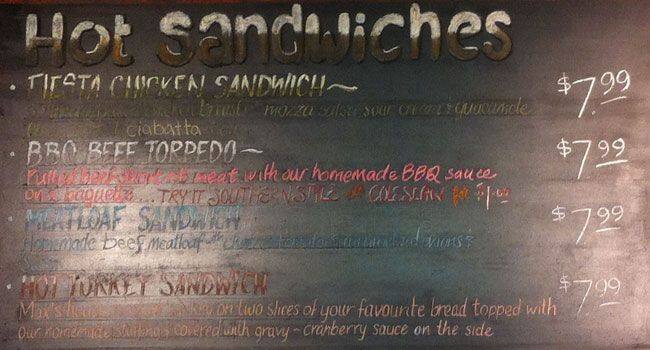 Hot Sandwiches
• FIESTA CHICKEN SANDWICH ~ $7.99
mozza salsa sour cream & guacamole
ciabatta
• BBQ BEEF TORPEDO ~ $7.99
Pulled beef short rib meat with our homemade BBQ sauce
on a baguette... TRY IT SOUTHERN STYLE COLESLAW for $1.00
• MEATLOAF SANDWICH $7.99
Homemade beef meatloaf with tomato onions &
• HOT TURKEY SANDWICH $7.99
Max's turkey on two slices of your favourite bread topped with
our homemade stuffing & covered with gravy ~ cranberry sauce on the side